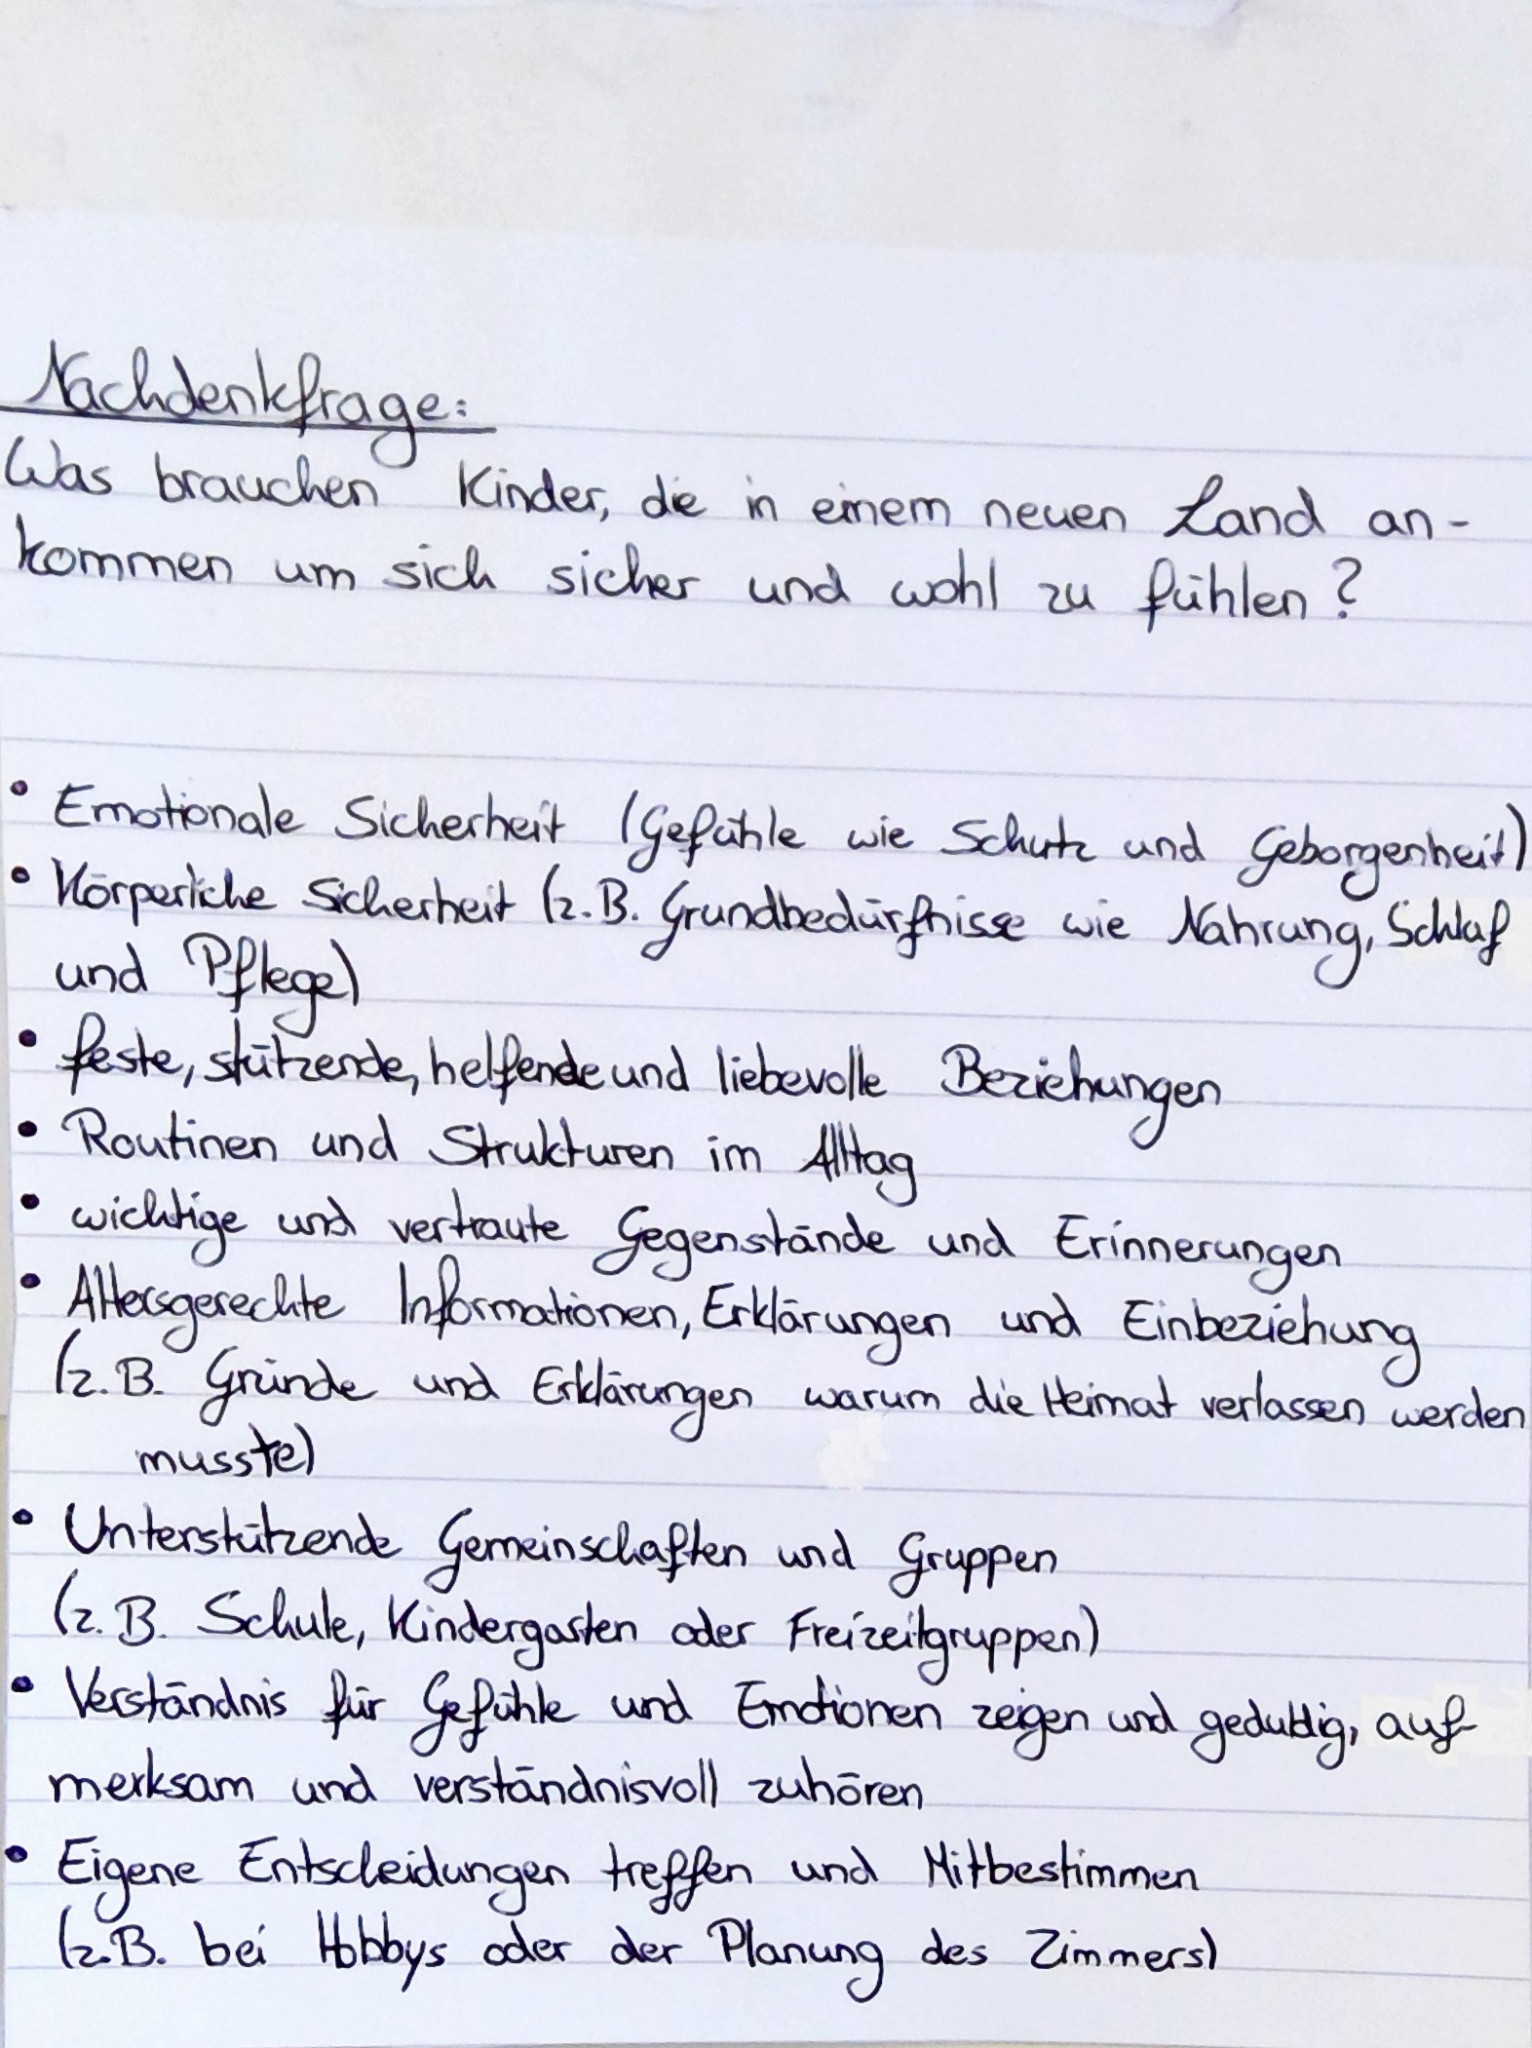 Nachdenkfrage:
Was brauchen Kinder, die in einem neuen Land an-
kommen um sich sicher und wohl zu fühlen?
• Emotionale Sicherheit (Gefühle wie Schutz und Geborgenheit)
• Körperliche Sicherheit (z.B. Grundbedürfnisse wie Nahrung, Schlaf
und Pflege)
• feste, stützende, helfende und liebevolle Beziehungen
• Routinen und Strukturen im Alltag
• wichtige und vertraute Gegenstände und Erinnerungen
• Altersgerechte Informationen, Erklärungen und Einbeziehung
(z.B. Gründe und Erklärungen warum die Heimat verlassen werden
musste)
• Unterstützende Gemeinschaften und Gruppen
(z.B. Schule, Kindergarten oder Freizeitgruppen)
• Verständnis für Gefühle und Emotionen zeigen und geduldig, auf-
merksam und verständnisvoll zuhören
• Eigene Entscheidungen treffen und Mitbestimmen
(z.B. bei Hobbys oder der Planung des Zimmers)